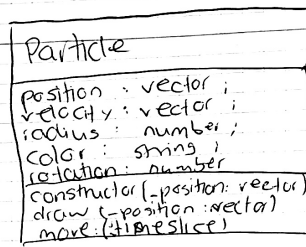 Particle
position : vector ;
velocity : vector ;
radius : number ;
color : string ;
rotation : number
constructor (-position: vector)
draw (-position : vector)
move (timeslice)